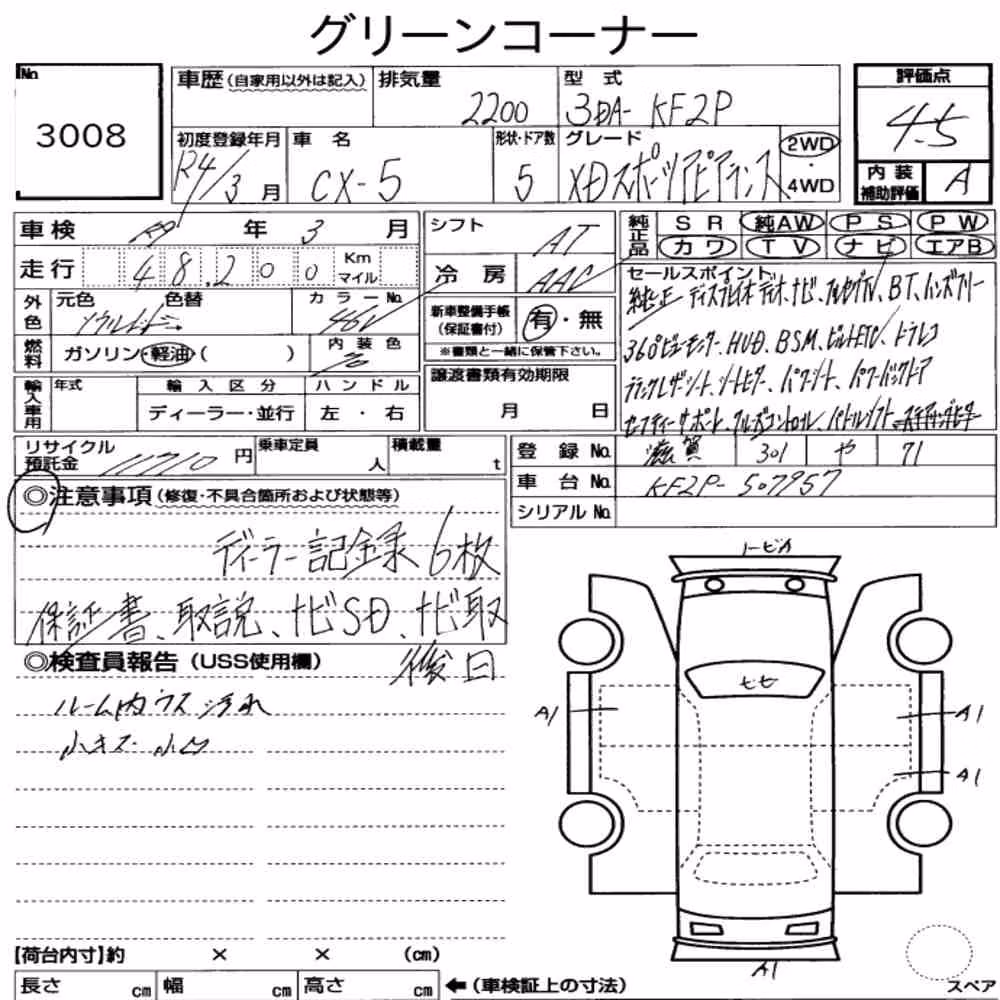 グリーンコーナー
No.
3008
車歴(自家用以外は記入)
排気量 2200
型式 3DA- KF2P
評価点 4.5
初度登録年月 R4/3月
車名 CX-5
形状・ドア数 5
グレード XDスポーツアピアランス
2WD・4WD
内装補助評価 A
車検 年 3 月
走行 48,200 Km マイル
外色 元色 色替
カラーNo. 46V
燃料 ガソリン・軽油( )
内装色
輸入車用 年式 輸入区分 ハンドル
ディーラー・並行 左・右
シフト AT
冷房 AAC
新車整備手帳(保証書付) 有・無
※書類と一緒に保管下さい。
譲渡書類有効期限
月 日
純正品 SR 純AW PS PW
カワ TV ナビ エアB
セールスポイント
純正ディスプレイオーディオ、ナビ、フルセグTV、BT、
360°ビューモニター、HUD、BSM、ビルトETC、ドラレコ
ブラックレザーシート、シートヒーター、パワーシート、パワーバックドア
セーフティーサポート、クルーズコントロール、パドルシフト ステアリングヒーター
リサイクル預託金 11710 円
乗車定員 人
積載量 t
登録No. 滋賀 301 や 71
車台No. KF2P-507957
シリアルNo.
◎注意事項(修復・不具合箇所および状態等)
ディーラー記録 6枚
保証書、取説、ナビSD、ナビ取
後日
◎検査員報告(USS使用欄)
ルーム内ウス汚れ
小キズ・小凹
トビカ
ヒヒ
A1
A1
A1
A1
スペア
【荷台内寸】約 × × (cm)
長さ cm 幅 cm 高さ cm
←(車検証上の寸法)